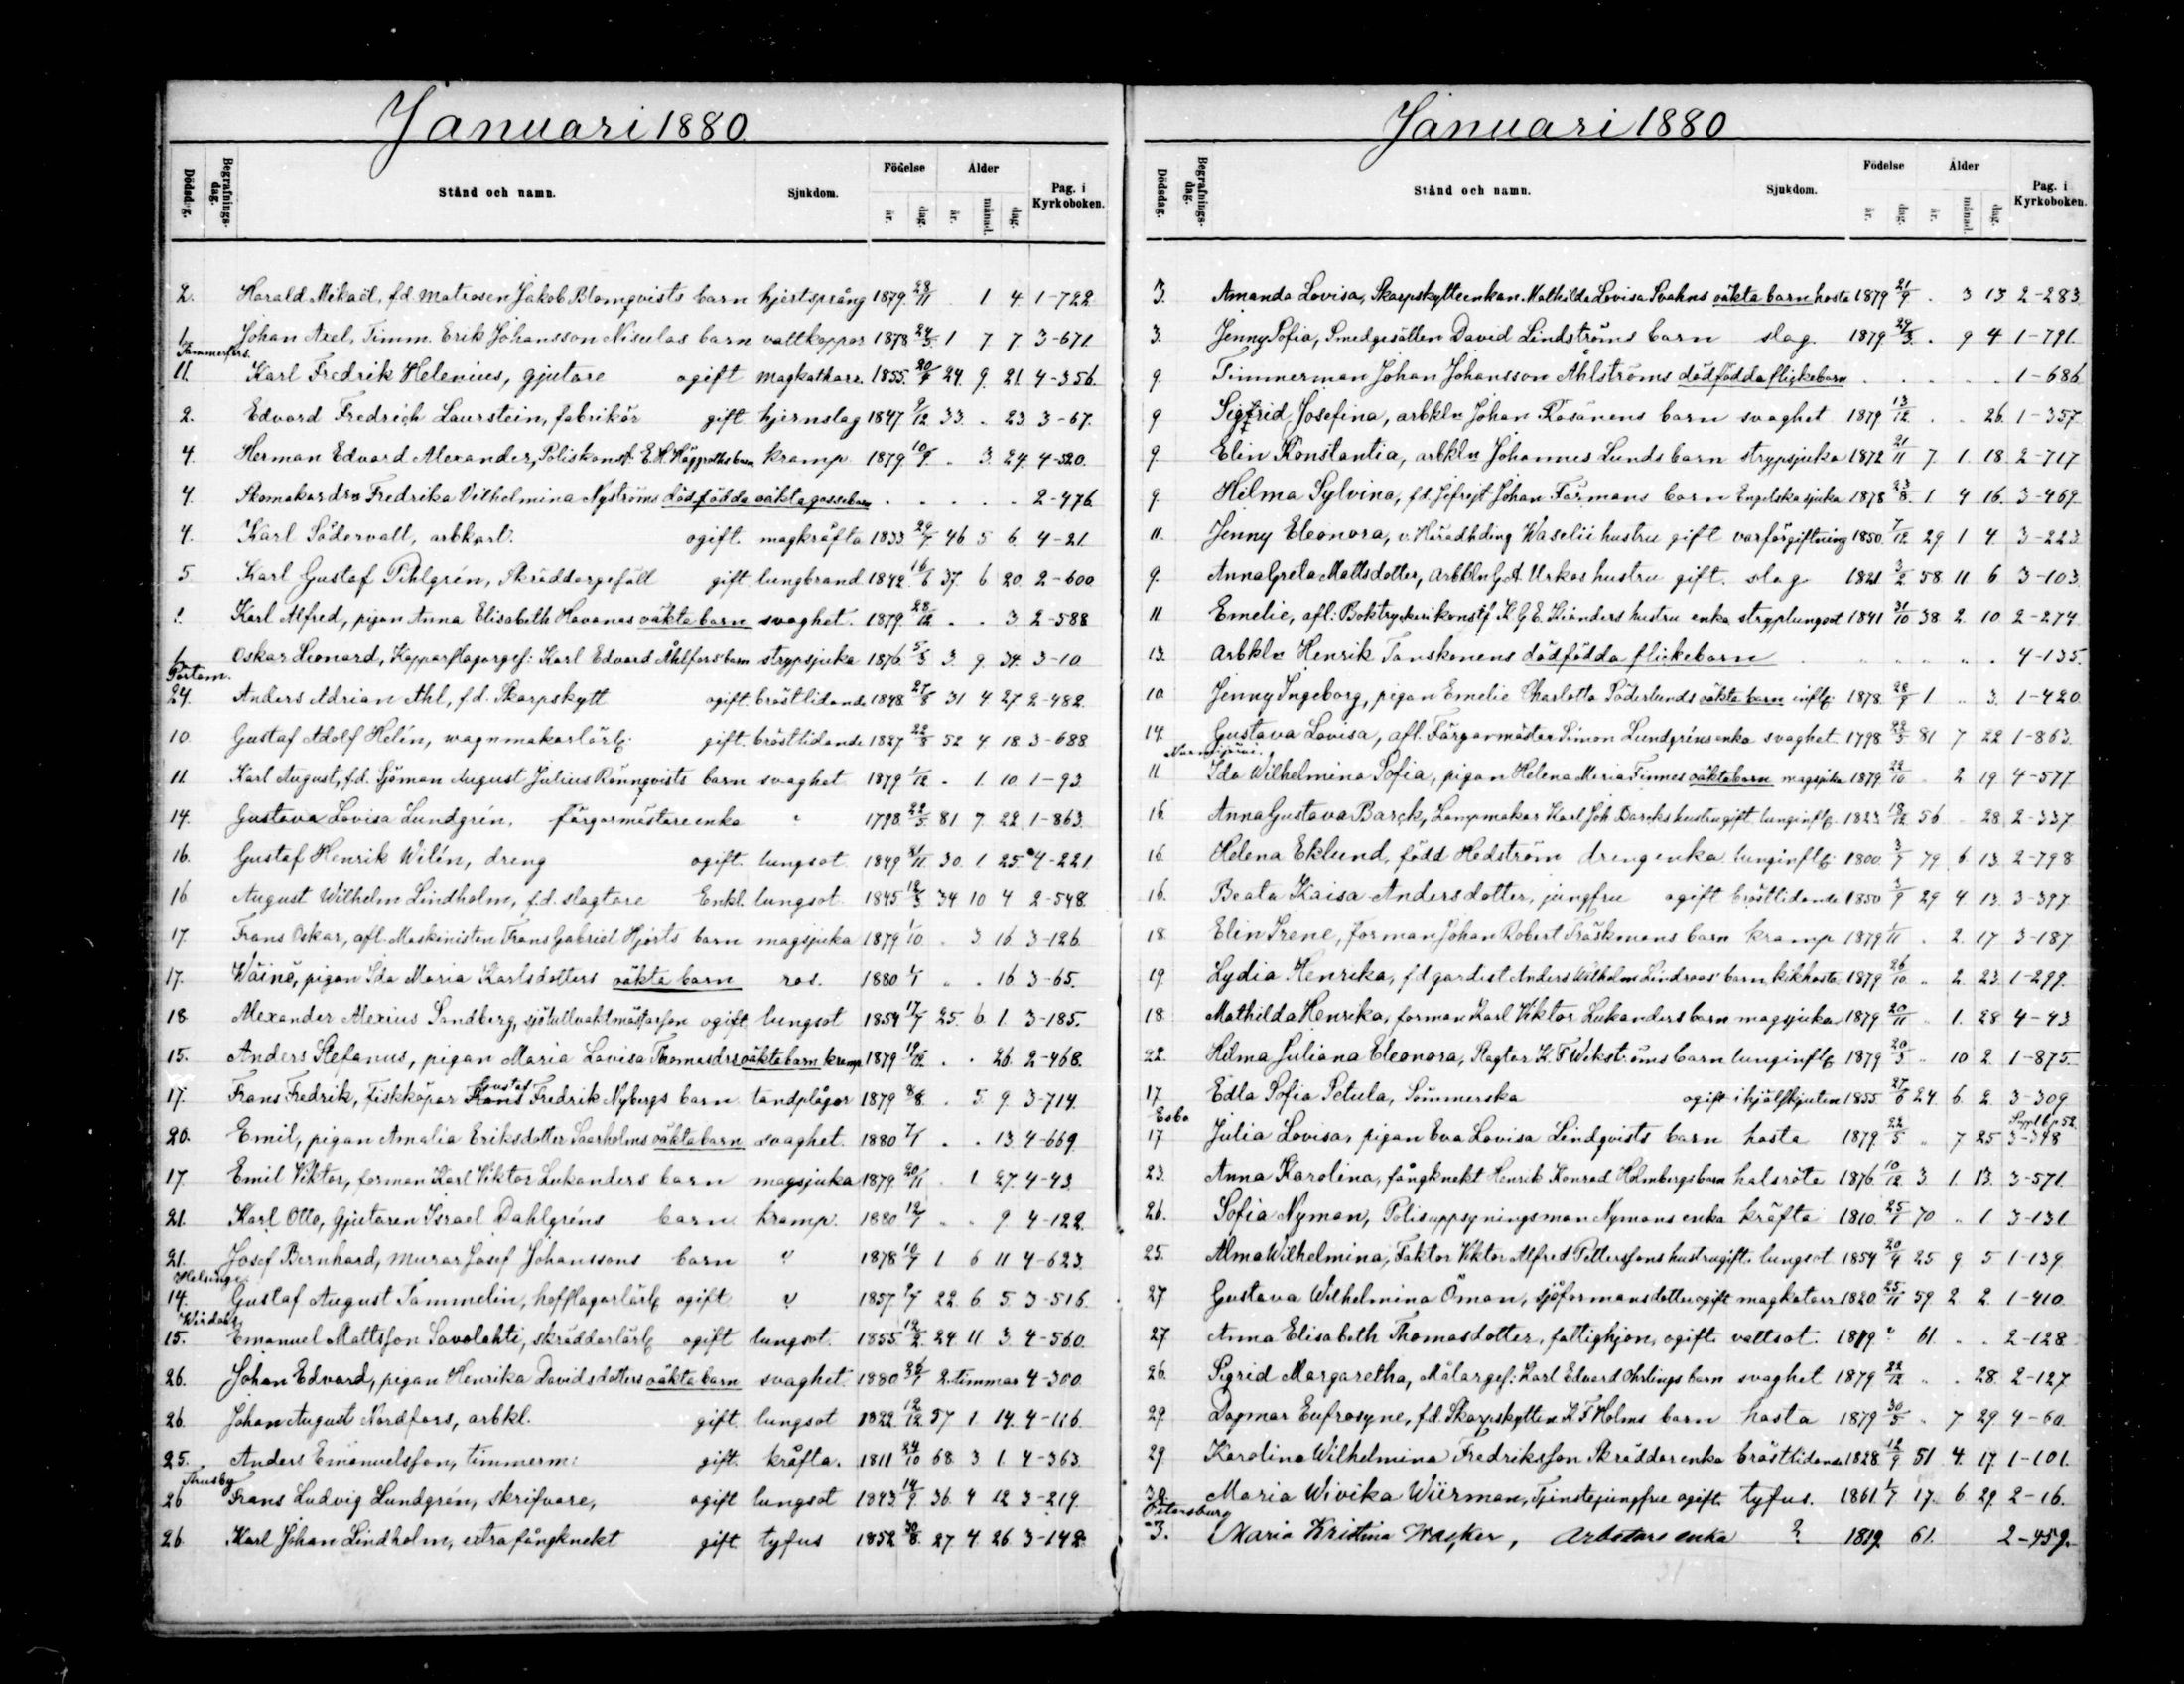 Januari 1880
Dödsdag. Begrafnings-dag. Stånd och namn. Sjukdom. Födelse år. dag. Ålder år. månad. dag. Pag. i Kyrkoboken.
2. Harald Mikaël, f.d. Matrosen Jakob Blomqvists barn hjertsprång 1879 28/11 . 1 4. 1-722
1. Johan Axel, Timm. Erik Johansson Nisulas barn vattkoppor 1878 24/5 1 7 7. 3-671.
Tammerfors.
11. Karl Fredrik Helenius, gjutare ogift magkatharr. 1855. 20/4 24. 9. 21. 4-356.
2. Edvard Fredrich Laurstein, fabrikör gift hjernslag 1847 9/12 33. . 23 3-67.
4. Herman Edvard Alexander, Poliskonst. E.H. barn kramp 1879. 10/9. . 3. 24. 4-520.
4. Skomakardr Fredrika Vilhelmina Nyströms dödfödda oäkta gossebarn . . . . . 2-476.
4. Karl Södervall, arbkarl. ogift. magkräfta 1833. 29/7 46 5 6. 4-21.
5 Karl Gustaf Pihlgrén, Skräddargesäll gift lungbrand 1842. 16/6 37. 6 20. 2-600
1. Karl Alfred, pigan Anna Elisabeth Havanas oäkta barn svaghet. 1879. 28/12 . . 3. 2-588
1. Oskar Leonard, Kopparslagargs: Karl Edvard Åhlfors' barn strypsjuka 1876. 5/3 3. 9. 24. 3-10
Pörtom.
24. Anders Adrian Ahl, f.d. Skarpskytt ogift bröstlidande 1848. 27/8 31 4. 27. 2-482.
10. Gustaf Adolf Helin, wagnmakarlärl. gift. bröstlidande 1827 22/8 52 4. 18. 3-688
11. Karl August, f.d. Sjöman August Julius Rönnqvists barn svaghet 1879 1/12 . 1. 10. 1-93
14. Gustava Lovisa Lundgrén. färgarmästareenka " 1798 22/5 81 7. 22 1-863.
16. Gustaf Henrik Wilén, dreng ogift. lungsot. 1849 21/11 30. 1 25. 4-221
16 August Wilhelm Lindholm, f.d. slagtare Enkl. lungsot. 1845 12/3 34 10 4 2-548
17. Frans Oskar, afl. Maskinisten Frans Gabriel Hjorts barn magsjuka 1879 1/10 . 3 16. 3-126.
17. Wäinö, pigan Ida Maria Karlsdotters oäkta barn ros. 1880 1/1 . . 16 3-65.
18. Alexander Alexius Sandberg, sjötullvaktmästarson ogift lungsot 1854 17/7 25. 6. 1. 3-185.
15. Anders Stefanus, pigan Maria Lovisa Thomasdrs oäkta barn kramp 1879 19/12 . . 26. 2-468.
17. Frans Fredrik, Fiskköpar Frans Gustaf Fredrik Nybergs barn tandplågor 1879 8/8 . 5. 9. 3-714.
20. Emil, pigan Amalia Eriksdotter Saarholms oäkta barn svaghet. 1880 7/1 . . 13. 4-669.
17. Emil Viktor, forman Karl Viktor Lukanders barn magsjuka 1879. 20/11 . 1. 27. 4-43.
21. Karl Otto, Gjutaren Israel Dahlgréns barn kramp. 1880 12/1 . . 9 4-122.
21. Josef Bernhard, Murar Josef Johanssons barn " 1878 10/7 1 6 11 4-623
Helsinge
14. Gustaf August Tammelin, hofslagarlärl. ogift " 1857. 9/7 22. 6. 5. 3-516.
15. Emanuel Mattsson Savolahti, skräddarlärl. ogift lungsot. 1855. 12/2. 24. 11. 3. 4-560.
26. Johan Edvard, pigan Henrika Davidsdotters oäkta barn svaghet. 1880 26/1 2. timmar 4-300
26. Johan August Nordfors, arbkl. gift. lungsot 1822 12/12 57 1. 14. 4-116.
25. Anders Emanuelsson, timmerm: gift. kräfta. 1811 24/10 68. 3 1. 4-363
Thusby
26 Frans Ludvig Lundgrén, skrifvare, ogift lungsot 1843. 14/9. 36. 4 12 3-219.
26. Karl Johan Lindholm, extra fångknekt gift tyfus 1852 30/8. 27 4. 26 3-142.
Januari 1880
Dödsdag. Begrafnings-dag. Stånd och namn. Sjukdom. Födelse år. dag. Ålder år. månad. dag. Pag. i Kyrkoboken.
3. Amanda Lovisa, Skarpskytteenkan Mathilda Lovisa Svahns oäkta barn hosta 1879 21/9 . 3 13 2-283
3. Jenny Sofia, Smedgesällen David Lindströms barn slag. 1879 29/3. . 9 4 1-791.
9. Timmerman Johan Johansson Åhlströms dödfödda flickebarn . . . . . 1-686
9 Sigfrid Josefina, arbkln Johan Rosänens barn svaghet 1879. 13/12 . . 26. 1-357
9. Elin Konstantia, arbkln Johannes Lunds barn strypsjuka 1872 21/11 7. 1. 18. 2-717
9. Hilma Sylvina, f.d. Johan Färmans barn Engelska sjuka 1878 23/8. 1. 4 16. 3-469.
11. Jenny Eleonora, v. Häradhding Waselii hustru gift varförgiftning 1850. 7/12 29 1 4. 3-223
9. Anna Greta Mattsdotter, arbkln G.A. Urkos hustru gift. slag. 1821 3/2. 58 11 6 3-103.
11 Emelie, afl: Boktryckerikonstf K.G.E. Kianders hustru enka stryplungsot 1841 31/10 38 2. 10. 2-274
13. Arbkln Henrik Tanskanens dödfödda flickebarn . . . . . 4-135.
10 Jenny Ingeborg, pigan Emelie Charlotta Söderlunds oäkta barn infl. 1878. 28/9 1 " 3. 1-420
14. Gustava Lovisa, afl. Färgarmäster Simon Lundgréns enka svaghet 1798. 22/5 81 7 22 1-863.
Nurmijärvi.
11 Ida Wilhelmina Sofia, pigan Helena Maria Finnes oäkta barn magsjuka 1879. 22/10 . 2 19. 4-577
16 Anna Gustava Barck, Lampmakar Karl Joh Barcks hustru gift lunginfl. 1823 18/12 56 . 28 2-337
16. Helena Eklund, född Hedström drengenka lunginfl. 1800. 3/7 79 6 13. 2-798
16. Beata Kaisa Andersdotter, jungfru ogift bröstlidande 1850 3/9 29 4. 13. 3-397.
18 Elin Irene, forman Johan Robert Träskmans barn kramp 1879 1/11 . 2. 17 3-187
19. Lydia Henrika, f.d gardist Anders Wilhelm Lindroos' barn kikhosta 1879. 26/10. " 2. 23. 1-299.
18 Mathilda Henrika, forman Karl Viktor Lukanders barn magsjuka 1879 20/11 . 1. 28 4-43
22. Hilma Juliana Eleonora, Ragtor K.F. Wikströms barn lunginfl. 1879 20/3 " 10 2. 1-875.
17 Edla Sofia Petula, Sömmerska ogift ihjälskjuten 1855 27/6 24 6 2. 3-309
Esbo
17 Julia Lovisa, pigan Eva Lovisa Lindqvists barn hosta 1879. 22/5 " 7 25 3-348 Suppl. p. 52.
23. Anna Karolina, fångknekt Henrik Konrad Holmbergs barn halsröta 1876. 10/12 3 1. 13. 3-571.
26. Sofia Nyman, Polisuppsyningsman Nymans enka kräfta 1810. 25/1 70 " 1 3-131
25. Alma Wilhelmina, Faktor Viktor Alfred Petterssons hustru gift. lungsot 1854 20/4 25 9 5 1-139
27 Gustava Wilhelmina Öman, sjöformansdotter ogift magkatarr 1820. 25/11 59 2 2. 1-410.
27. Anna Elisabeth Thomasdotter, fattighjon, ogift. vattsot. 1819. " 61. . . 2-128
26. Sigrid Margaretha, Målarges: Karl Edvard Öhrlings barn svaghet 1879 22/12 " . 28. 2-127.
29 Dagmar Eufrosyne, f.d. Skarpskytten K F Holms barn hosta 1879. 30/5. " 7 29. 4-60.
29. Karolina Wilhelmina Fredriksson Skräddarenka bröstlidande 1828. 12/9 51 4. 17. 1-101.
30. Maria Wivika Wiirman, Tjenstejungfru ogift. tyfus. 1861. 1/7 17. 6. 29. 2-16.
Petersburg
3. Maria Kristina Wacker, Arbetare enka ? 1819. 61. 2-459.